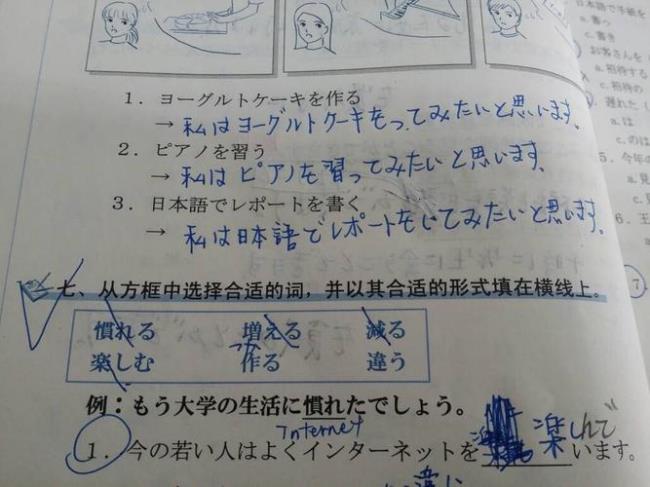 日本語で手紙を
a. 書っ
c. 書き
お客さんを
a. 招待する
c. 招待の
遅れた
a. は
c. のは
5. 今年の
a. 見
c. 見
6. 王
a.
7
1. ヨーグルトケーキを作る
→ 私はヨーグルトケーキもってみたいと思います。
2. ピアノを習う
→ 私はピアノを習ってみたいと思います。
3. 日本語でレポートを書く
→ 私は日本語でレポートをしてみたいと思います。
七、从方框中选择合适的词，并以其合适的形式填在横线上。
慣れる 増える 減る
楽しむ 作る 違う
例：もう大学の生活に慣れたでしょう。
Internet
1. 今の若い人はよくインターネットを 楽しんで います。